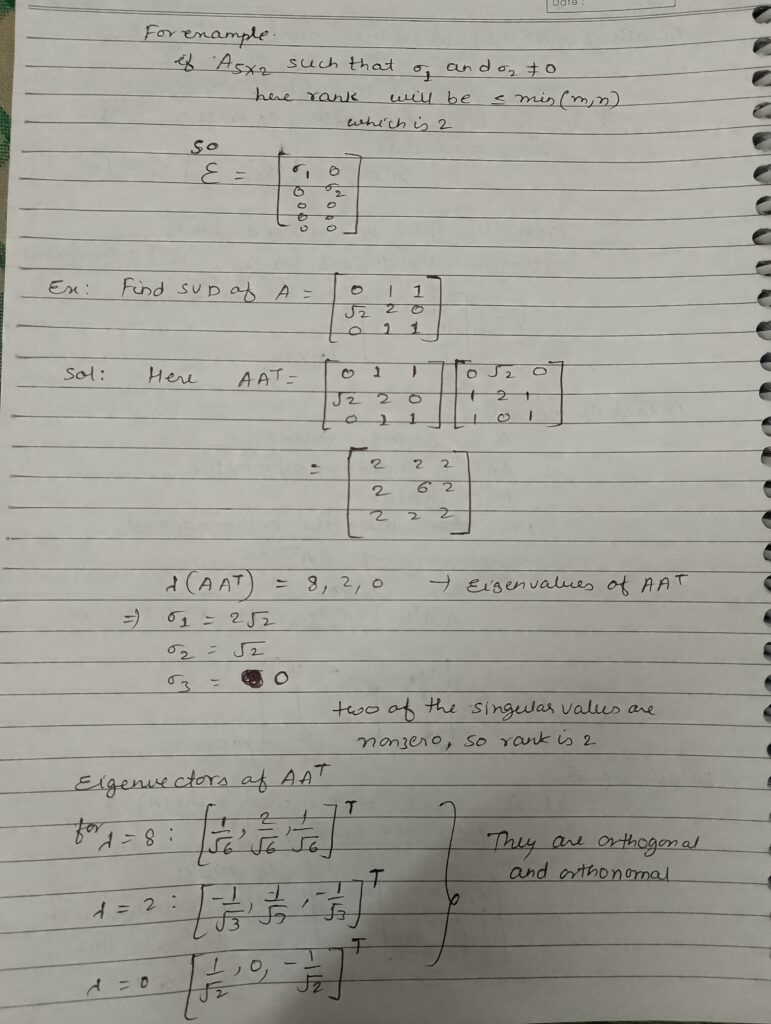 Date :
For example.
if A5x2 such that σ1 and σ2 ≠ 0
here rank will be ≤ min(m,n)
which is 2
so
Σ = [σ1 0
0 σ2
0 0
0 0
0 0]
Ex: Find SVD of A = [0 1 1
√2 2 0
0 1 1]
Sol: Here AAT = [0 1 1 √2 2 0 0 1 1] [0 √2 0 1 2 1 1 0 1]
= [2 2 2
2 6 2
2 2 2]
λ(AAT) = 8, 2, 0 → Eigenvalues of AAT
=> σ1 = 2√2
σ2 = √2
σ3 = 0
two of the singular values are
nonzero, so rank is 2
Eigenvectors of AAT
for λ = 8 : [1/√6, 2/√6, 1/√6]T
They are orthogonal
and orthonomal
λ = 2 : [-1/√3, 1/√3, -1/√3]T
λ = 0 [1/√2, 0, -1/√2]T